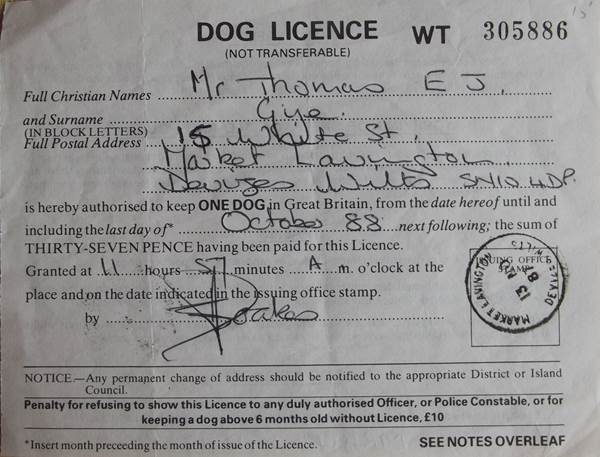 DOG LICENCE WT 305886
(NOT TRANSFERABLE)
Full Christian Names Mr Thomas E J.
and Surname Gye.
(IN BLOCK LETTERS)
Full Postal Address 15 White St,
Market Lavington,
Devizes Wilts SN10 4DP.
is hereby authorised to keep ONE DOG in Great Britain, from the date hereof until and
including the last day of* October 88 next following; the sum of
THIRTY-SEVEN PENCE having been paid for this Licence.
Granted at 11 hours 57 minutes A m. o'clock at the
place and on the date indicated in the issuing office stamp.
by
ISSUING OFFICE
STAMP
MARKET LAVINGTON
13
8
NOTICE.—Any permanent change of address should be notified to the appropriate District or Island
Council.
Penalty for refusing to show this Licence to any duly authorised Officer, or Police Constable, or for
keeping a dog above 6 months old without Licence, £10
*Insert month preceeding the month of issue of the Licence. SEE NOTES OVERLEAF